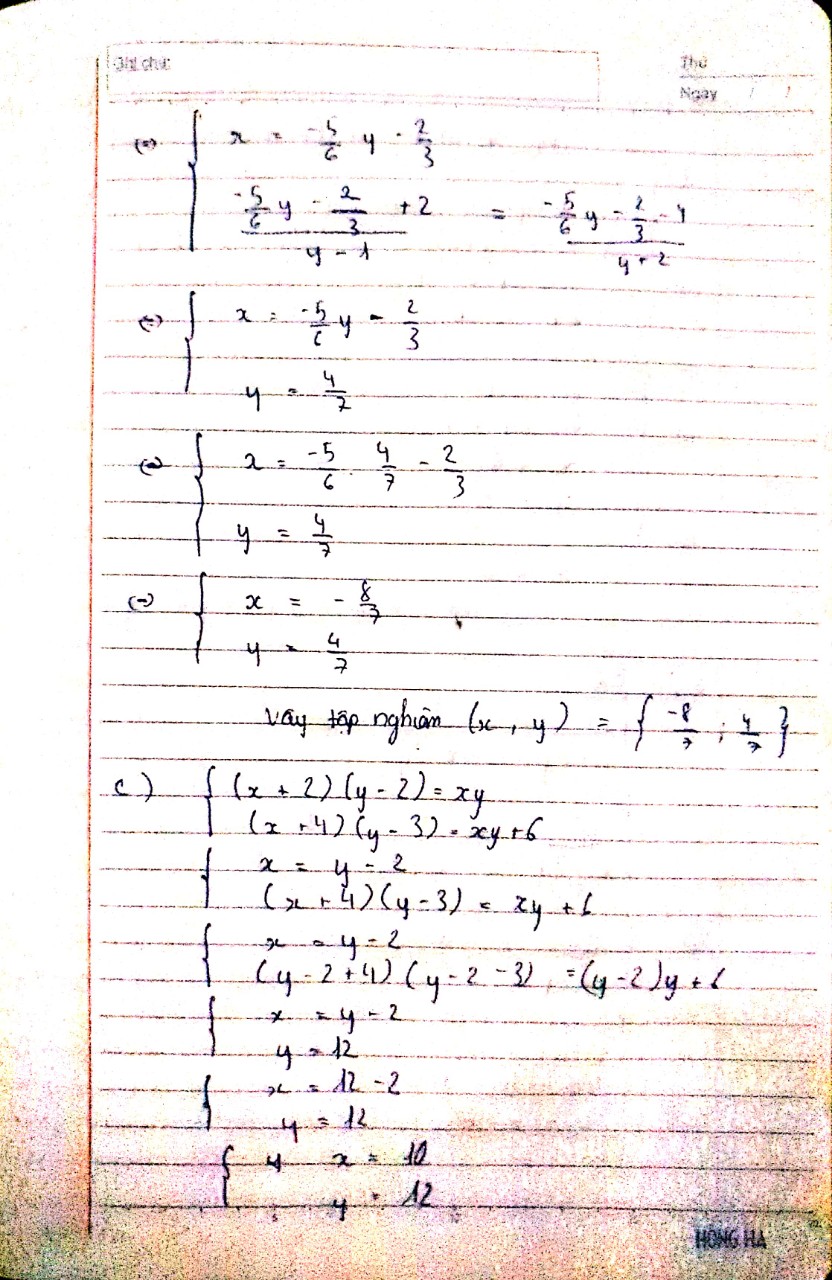 Ghi chú:
Thứ
Ngày / /
(=) { x = -5/6 y - 2/3
(-5/6 y - 2/3 + 2)/(y - 1) = (-5/6 y - 2/3 - 4)/(y + 2)
(=) { x = -5/6 y - 2/3
y = 4/7
(=) { x = -5/6 . 4/7 - 2/3
y = 4/7
(=) { x = - 8/7
y = 4/7
Vậy tập nghiệm (x, y) = { -8/7 ; 4/7 }
c) { (x + 2)(y - 2) = xy
(x + 4)(y - 3) = xy + 6
{ x = y - 2
(x + 4)(y - 3) = xy + 6
{ x = y - 2
(y - 2 + 4)(y - 2 - 3) = (y - 2)y + 6
{ x = y - 2
y = 12
{ x = 12 - 2
y = 12
{ y x = 10
y = 12
HONG HA